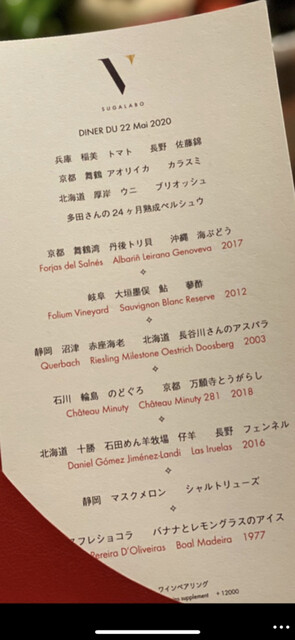 V
SUGALABO
DINER DU 22 Mai 2020
兵庫 稲美 トマト 長野 佐藤錦
京都 舞鶴 アオリイカ カラスミ
北海道 厚岸 ウニ ブリオッシュ
多田さんの24ヶ月熟成ペルシュウ
京都 舞鶴湾 丹後トリ貝 沖縄 海ぶどう
Forjas del Salnés Albariñ Leirana Genoveva 2017
岐阜 大垣墨俣 鮎 蓼酢
Folium Vineyard Sauvignon Blanc Reserve 2012
静岡 沼津 赤座海老 北海道 長谷川さんのアスパラ
Querbach Riesling Milestone Oestrich Doosberg 2003
石川 輪島 のどぐろ 京都 万願寺とうがらし
Château Minuty Château Minuty 281 2018
北海道 十勝 石田めん羊牧場 仔羊 長野 フェンネル
Daniel Gómez Jiménez-Landi Las Iruelas 2016
静岡 マスクメロン シャルトリューズ
スフレショコラ バナナとレモングラスのアイス
Pereira D'Oliveiras Boal Madeira 1977
ワインペアリング
supplement +12000